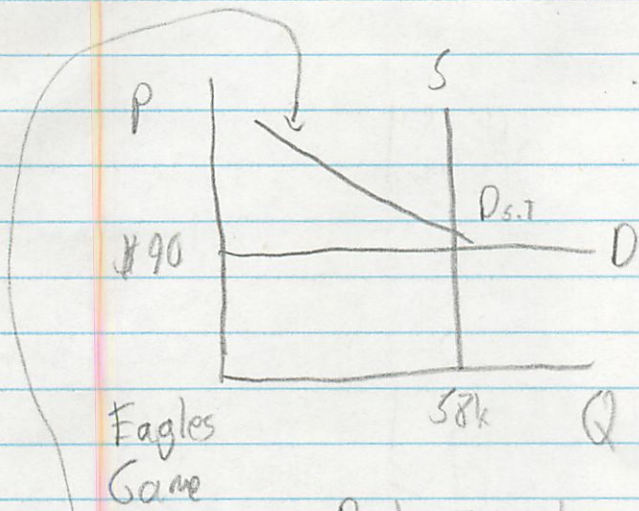 P
S
D S.T
$90
D
58k
Q
Eagles
Game